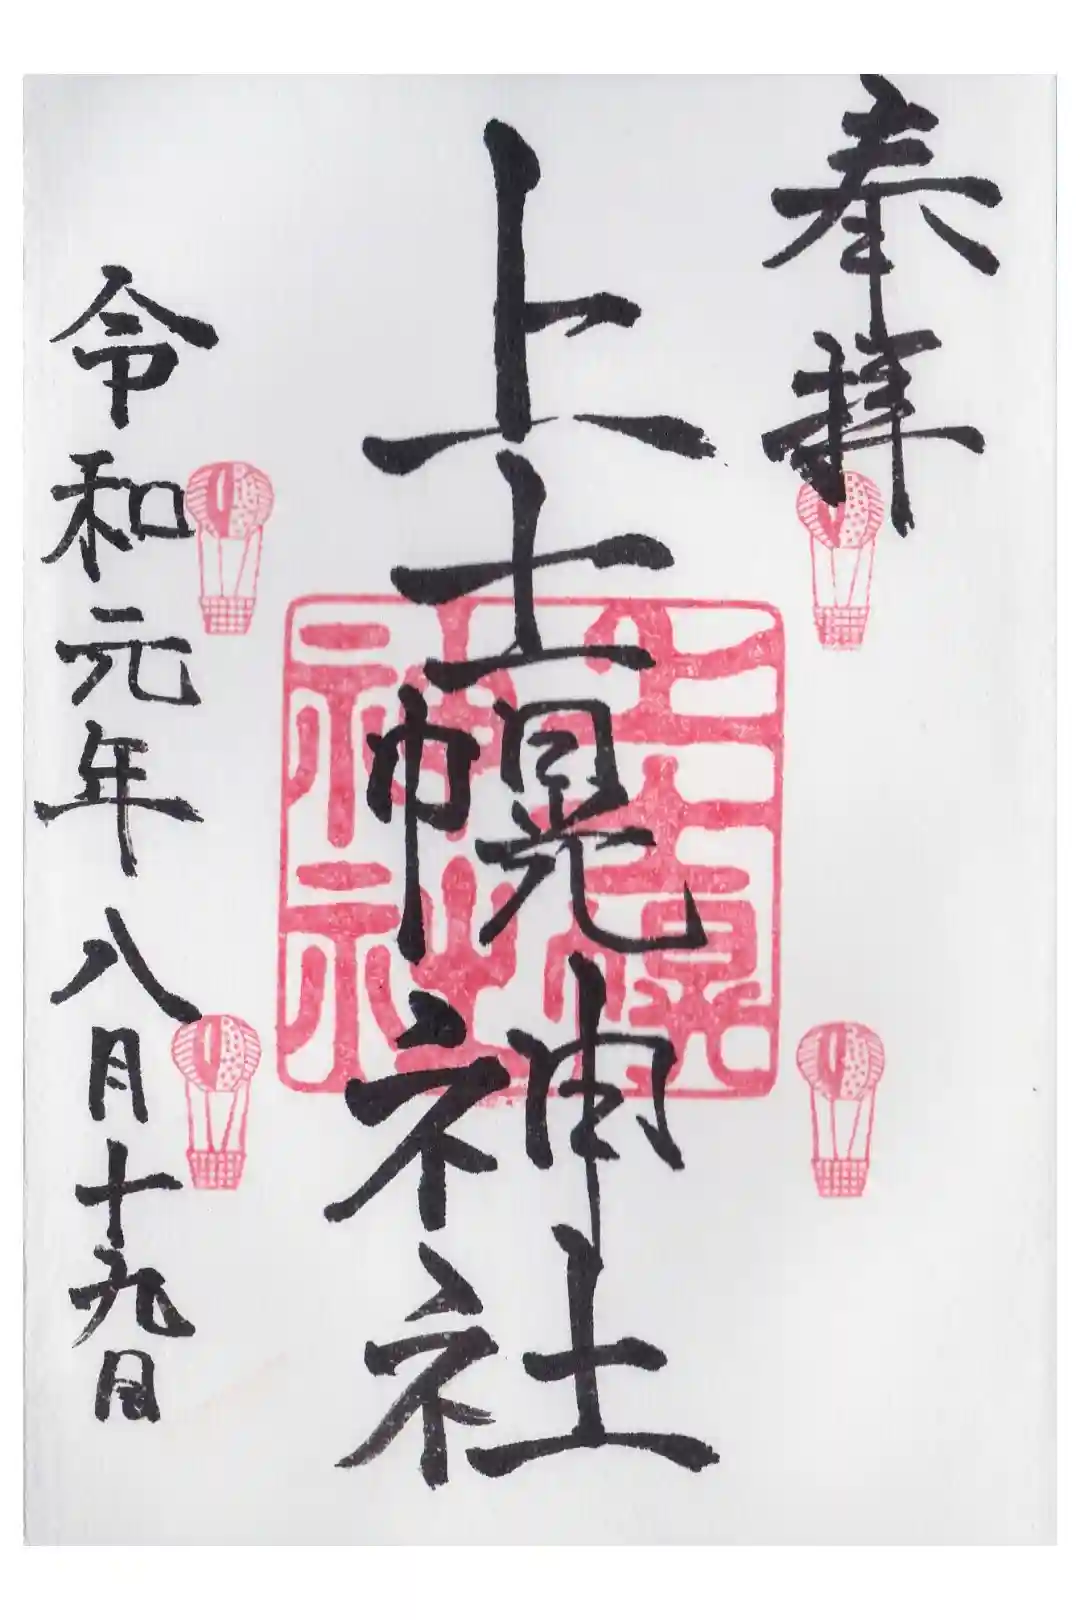 奉拝
上士幌神社
上士幌神社
令和元年八月十九日